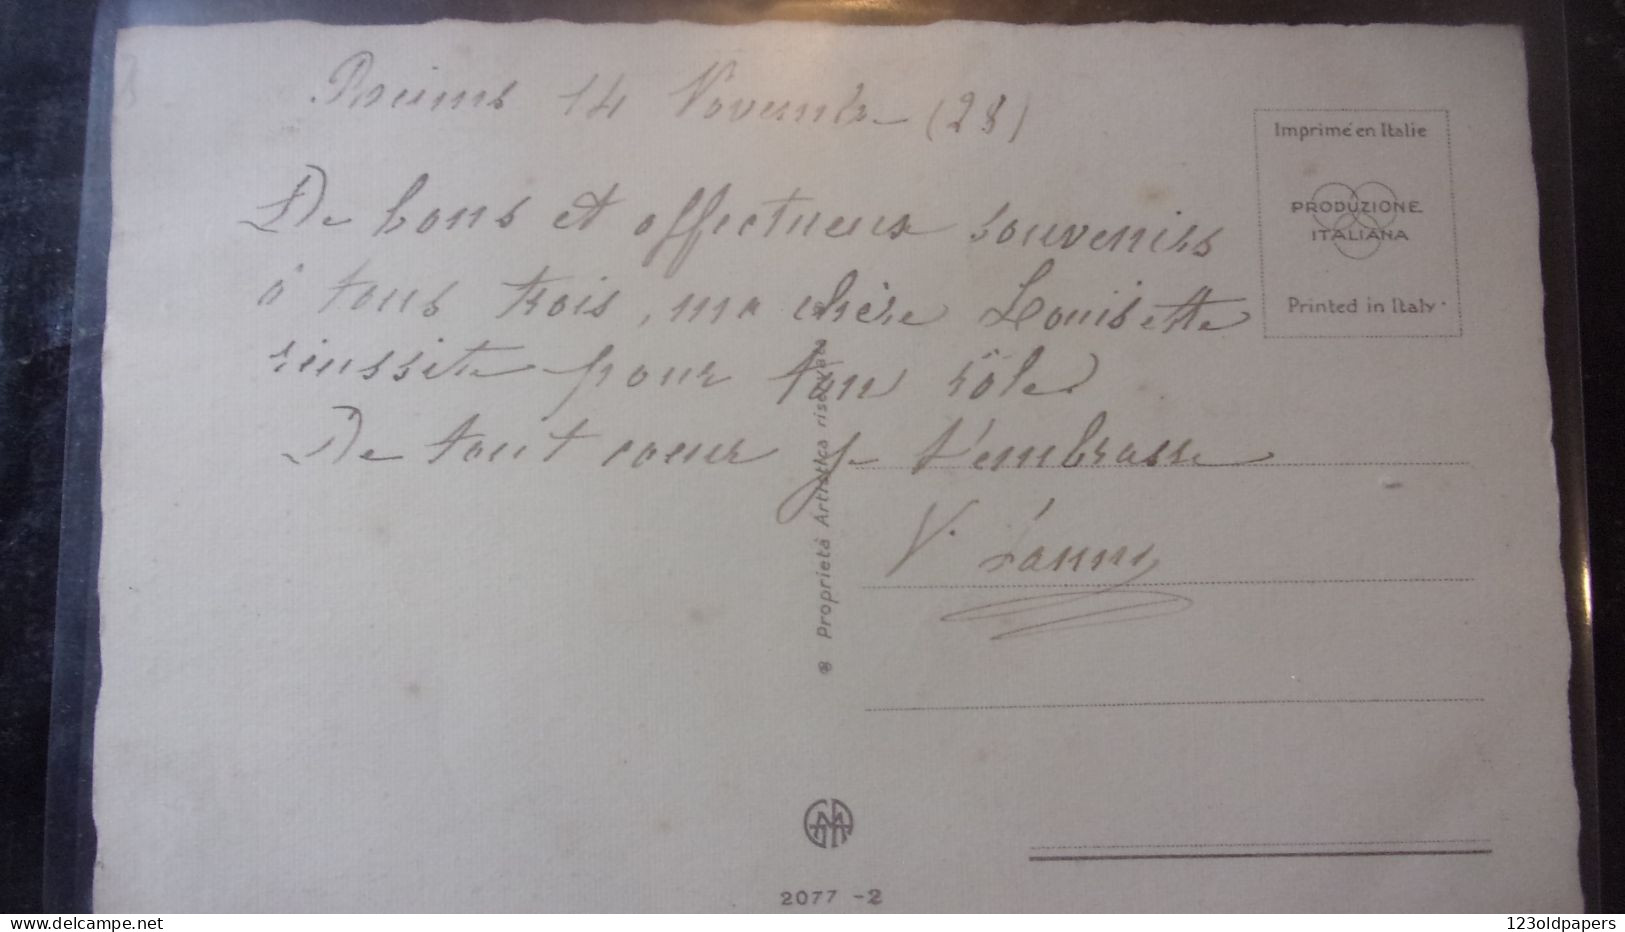 Reims 14 Novembre (28)
De bons et affectueux souvenirs
à tous trois, ma chère Louisette
réussite pour ton rôle
De tout coeur je t'embrasse
V.
Imprimé en Italie
PRODUZIONE
ITALIANA
Printed in Italy
® Proprietà Artistica riservata
2077 -2
www.delcampe.net
123oldpapers